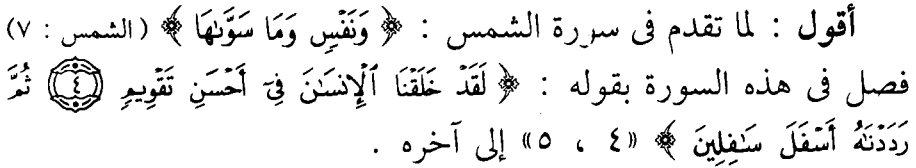 أقول : لما تقدم فى سورة الشمس : ﴿ وَنَفْسٍ وَمَا سَوَّىٰهَا ﴾ (الشمس : ٧)
فصل فى هذه السورة بقوله : ﴿ لَقَدْ خَلَقْنَا ٱلْإِنسَٰنَ فِىٓ أَحْسَنِ تَقْوِيمٍ ۝٤ ثُمَّ
رَدَدْنَٰهُ أَسْفَلَ سَٰفِلِينَ ﴾ «٤ ، ٥» إلى آخره .